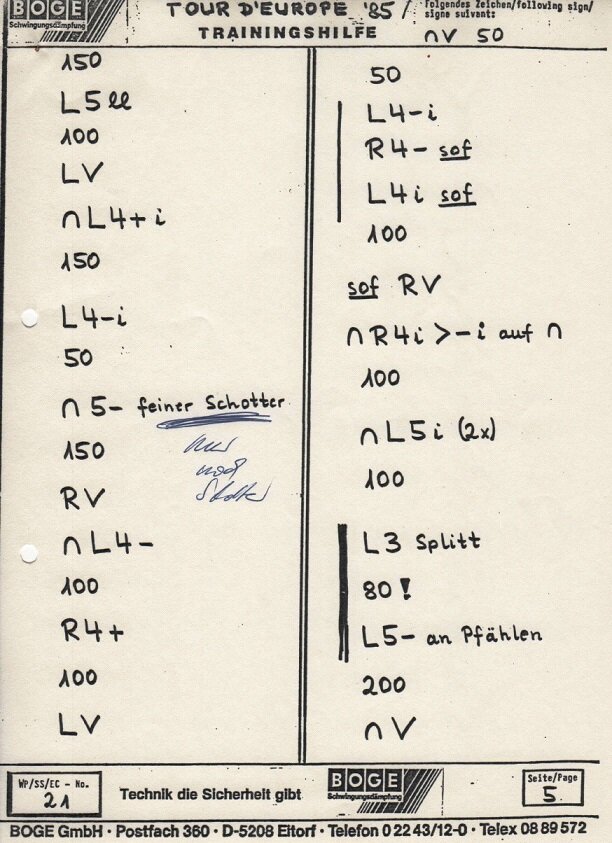 BOGE
Schwingungsdämpfung
TOUR D'EUROPE '85 /
TRAININGSHILFE
Folgendes Zeichen/following sign/
signe suivant:
∩V 50
150
L5 ll
100
LV
∩L4+i
150
L4-i
50
∩ 5- feiner Schotter
150
nur
noch
RV
∩L4-
100
R4+
100
LV
50
L4-i
R4- sof
L4i sof
100
sof RV
∩R4i >-i auf ∩
100
∩L5i (2x)
100
L3 Splitt
80!
L5- an Pfählen
200
∩V
WP/SS/EC - No.
21
Technik die Sicherheit gibt
BOGE
Schwingungsdämpfung
Seite/Page
5
BOGE GmbH · Postfach 360 · D-5208 Eitorf · Telefon 0 22 43/12-0 · Telex 08 89 572